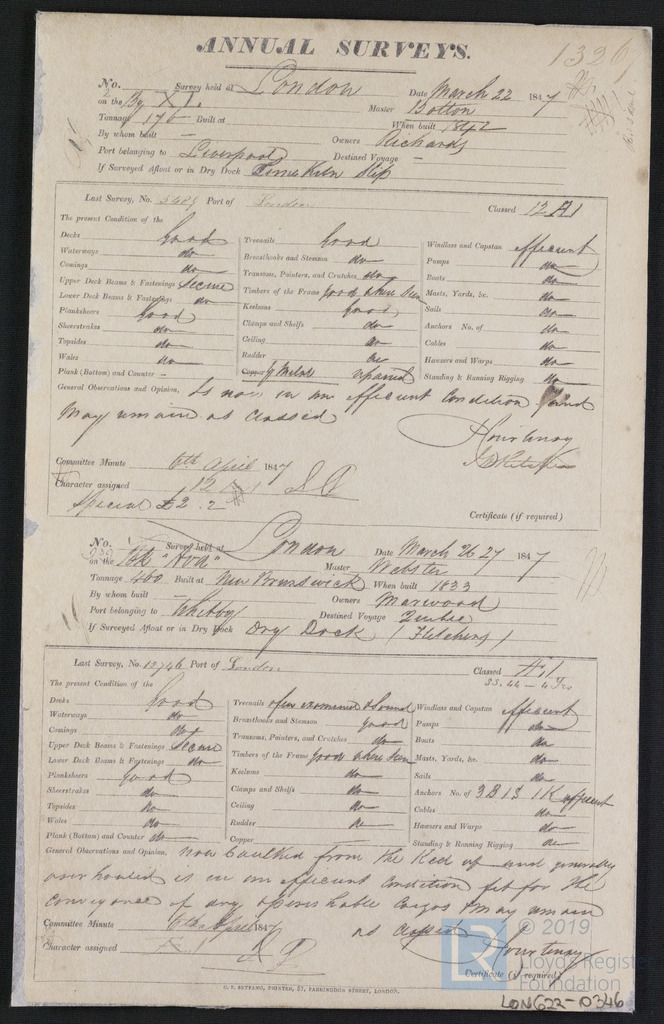 ANNUAL SURVEYS.
1326
No. Survey held at London Date March 22 1847
on the Bg Master Bolton
Tonnage 176 Built at When built
By whom built — Owners Richards
Port belonging to Liverpool Destined Voyage —
If Surveyed Afloat or in Dry Dock Limekiln Slip
Last Survey, No. Port of London Classed 12 A1
The present Condition of the
Decks good Treenails good Windlass and Capstan efficient
Waterways do Breasthooks and Stemson do Pumps do
Comings do Transoms, Pointers, and Crutches do Boats do
Upper Deck Beams & Fastenings Secure Timbers of the Frame good when seen Masts, Yards, &c. do
Lower Deck Beams & Fastenings do Keelsons good Sails do
Planksheers good Clamps and Shelfs do Anchors No. of do
Sheerstrakes do Ceiling do Cables do
Topsides do Rudder do Hawsers and Warps do
Wales do Copper y Metal repaired Standing & Running Rigging do
Plank (Bottom) and Counter —
General Observations and Opinion, Is now in an efficient Condition and
May remain as Classed
J Courtnay
Committee Minute 6th April 1847
Character assigned 12 A1
Special £2.2
Certificate (if required)
No. Survey held at London Date March 26 27 1847
on the Master Webster
Tonnage 400 Built at New Brunswick When built 1833
By whom built — Owners Marwood
Port belonging to Whitby Destined Voyage Quebec
If Surveyed Afloat or in Dry Dock Dry Dock (Fletchers)
Last Survey, No. 12746 Port of London Classed Æ1
SS. 44 - 4 Yrs
The present Condition of the
Decks good Treenails often examined & Sound Windlass and Capstan efficient
Waterways do Breasthooks and Stemson good Pumps do
Comings do Transoms, Pointers, and Crutches do Boats do
Upper Deck Beams & Fastenings Secure Timbers of the Frame good when seen Masts, Yards, &c. do
Lower Deck Beams & Fastenings do Keelsons do Sails do
Planksheers good Clamps and Shelfs do Anchors No. of 3 B 1 S 1 K efficient
Sheerstrakes do Ceiling do Cables do
Topsides do Rudder do Hawsers and Warps do
Wales do Copper Standing & Running Rigging do
Plank (Bottom) and Counter do
General Observations and Opinion, now Caulked from the Keel up and generally
overhauled is in an efficient Condition fit for the
conveyance of dry & perishable Cargos & may remain
as Classed
J Courtnay
Committee Minute 6th April 1847
Character assigned Æ 1
Certificate (if required)
C. F. SEYFANG, PRINTER, 57, FARRINGDON STREET, LONDON.
© 2019
Lloyd's Register
Foundation
LON622-0346